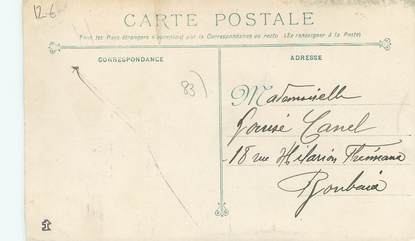 12-6
CARTE POSTALE
Tous les Pays étrangers n'acceptent pas la Correspondance au recto (Se renseigner à la Poste)
CORRESPONDANCE
ADRESSE
83)
Mademoiselle
Louise Canel
18 rue Hilarion
Roubaix